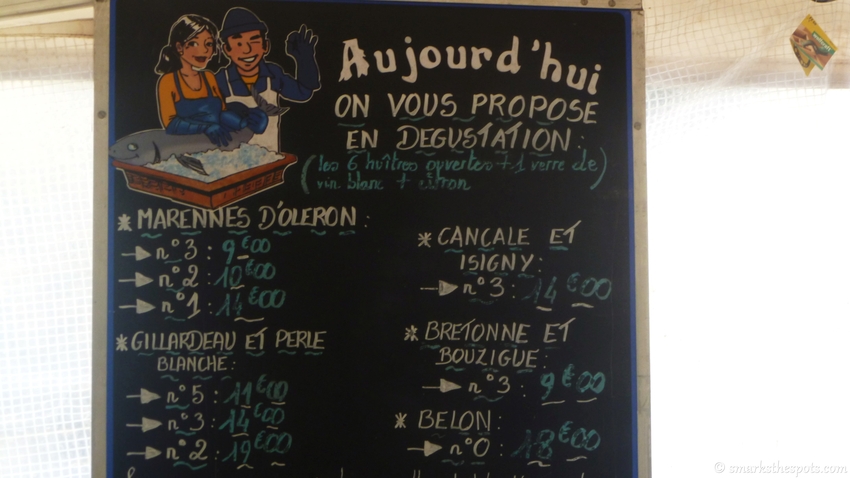 Aujourd'hui
ON VOUS PROPOSE
EN DEGUSTATION:
(les 6 huîtres ouvertes + 1 verre de)
vin blanc + citron
* MARENNES D'OLERON:
→ n°3 : 9€00
→ n°2 : 10€00
→ n°1 : 14€00
* GILLARDEAU ET PERLE
BLANCHE:
→ n°5 : 11€00
→ n°3 : 14€00
→ n°2 : 19€00
* CANCALE ET
ISIGNY:
→ n°3 : 14€00
* BRETONNE ET
BOUZIGUE:
→ n°3 : 9€00
* BELON:
→ n°0 : 18€00
© smarksthespots.com